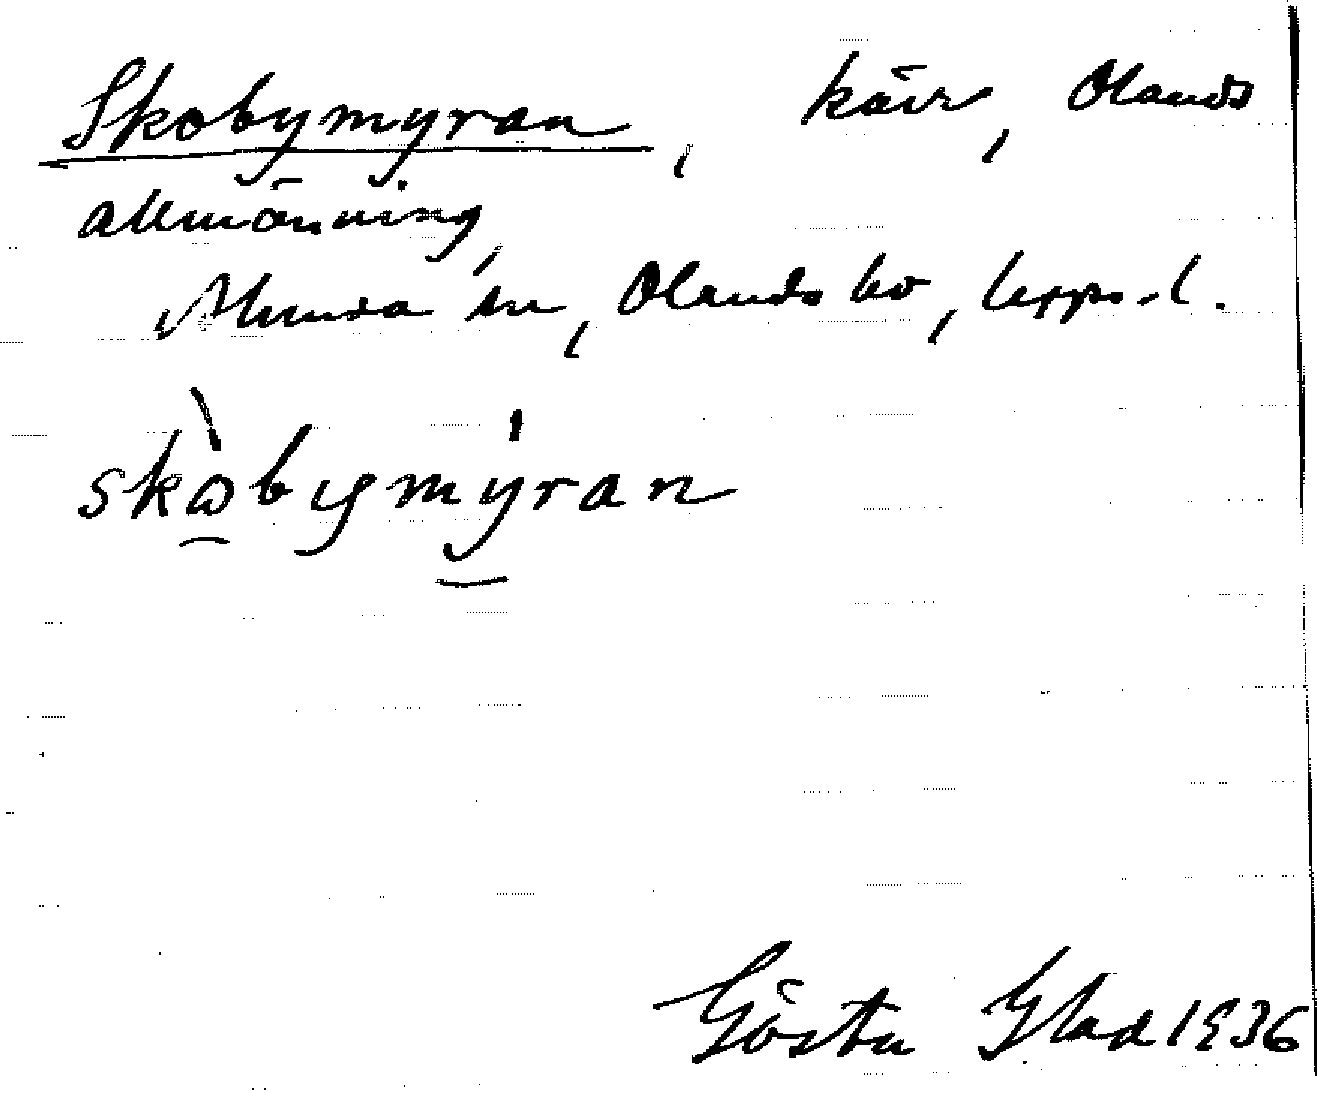 Skobymyran, kärr, Olands
allmänning,
Alunda sn, Olands hd, Upps. l.
skòbymýran
Gösta Glad 1936